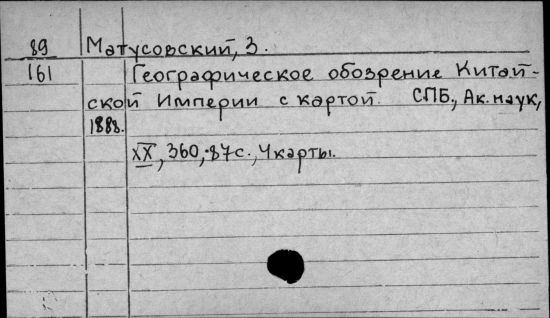 89 Матусовский, З.
161 Географическое обозрение Китай-
ской Империи с картой. СПБ., Ак. наук,
1888.
XX, 360, 87с., 4 карты.